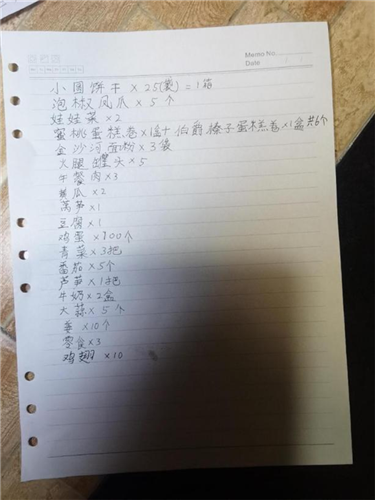 Memo No.
Date
小圆饼干 × 25(袋) = 1箱
泡椒凤爪 × 5个
娃娃菜 × 2
蜜桃蛋糕卷 × 1盒十伯爵榛子蛋糕卷 × 1盒共6个
金沙河面粉 × 3袋
火腿罐头 × 5
午餐肉 × 3
黄瓜 × 2
莴笋 × 1
豆腐 × 1
鸡蛋 × 100个
青菜 × 3把
番茄 × 5个
芦笋 × 1把
牛奶 × 2盒
大蒜 × 5个
姜 × 10个
零食 × 3
鸡翅 × 10